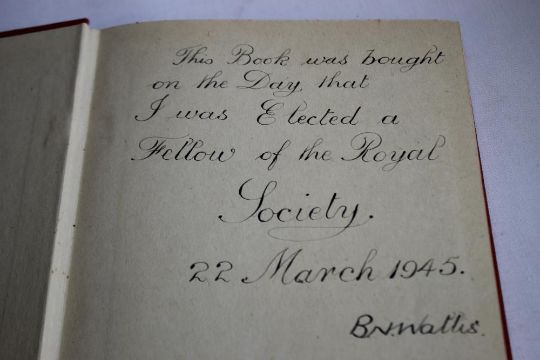 This Book was bought
on the Day, that
I was Elected a
Fellow of the Royal
Society.
22 March 1945.
B.N.Wallis.